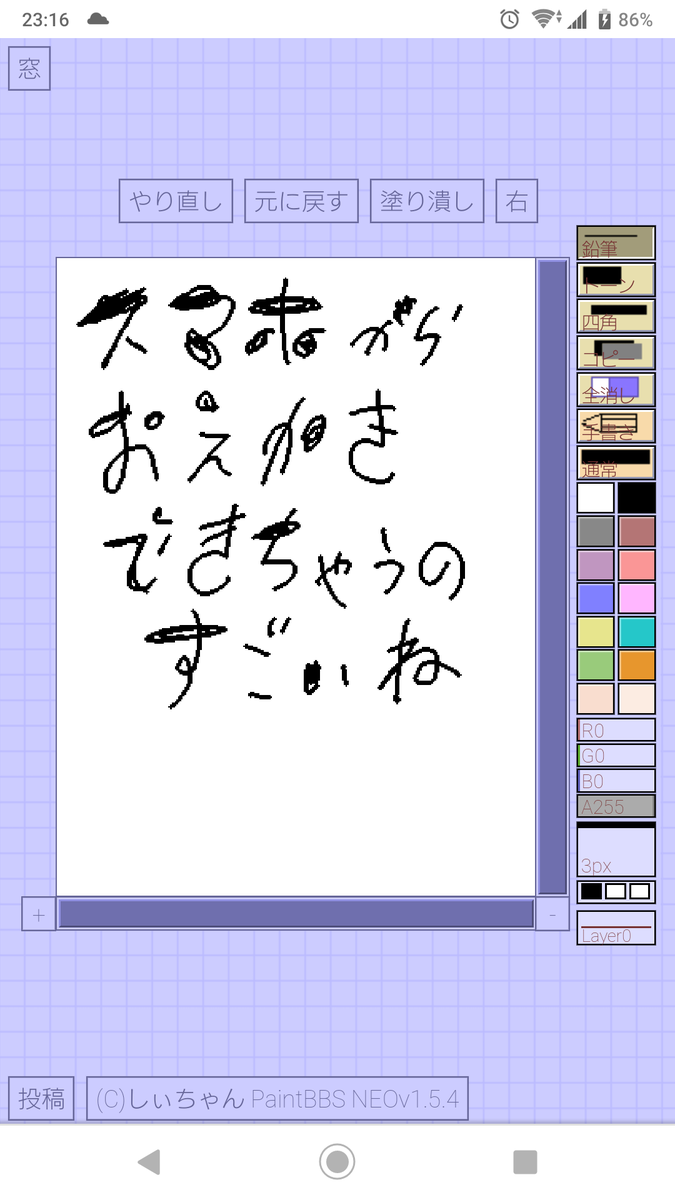 23:16
86%
窓
やり直し 元に戻す 塗り潰し 右
スマホから
おえかき
できちゃうの
すごいね
鉛筆
トーン
四角
コピー
全消し
手書き
通常
R0
G0
B0
A255
3px
+
-
Layer0
投稿 (C)しぃちゃん PaintBBS NEOv1.5.4